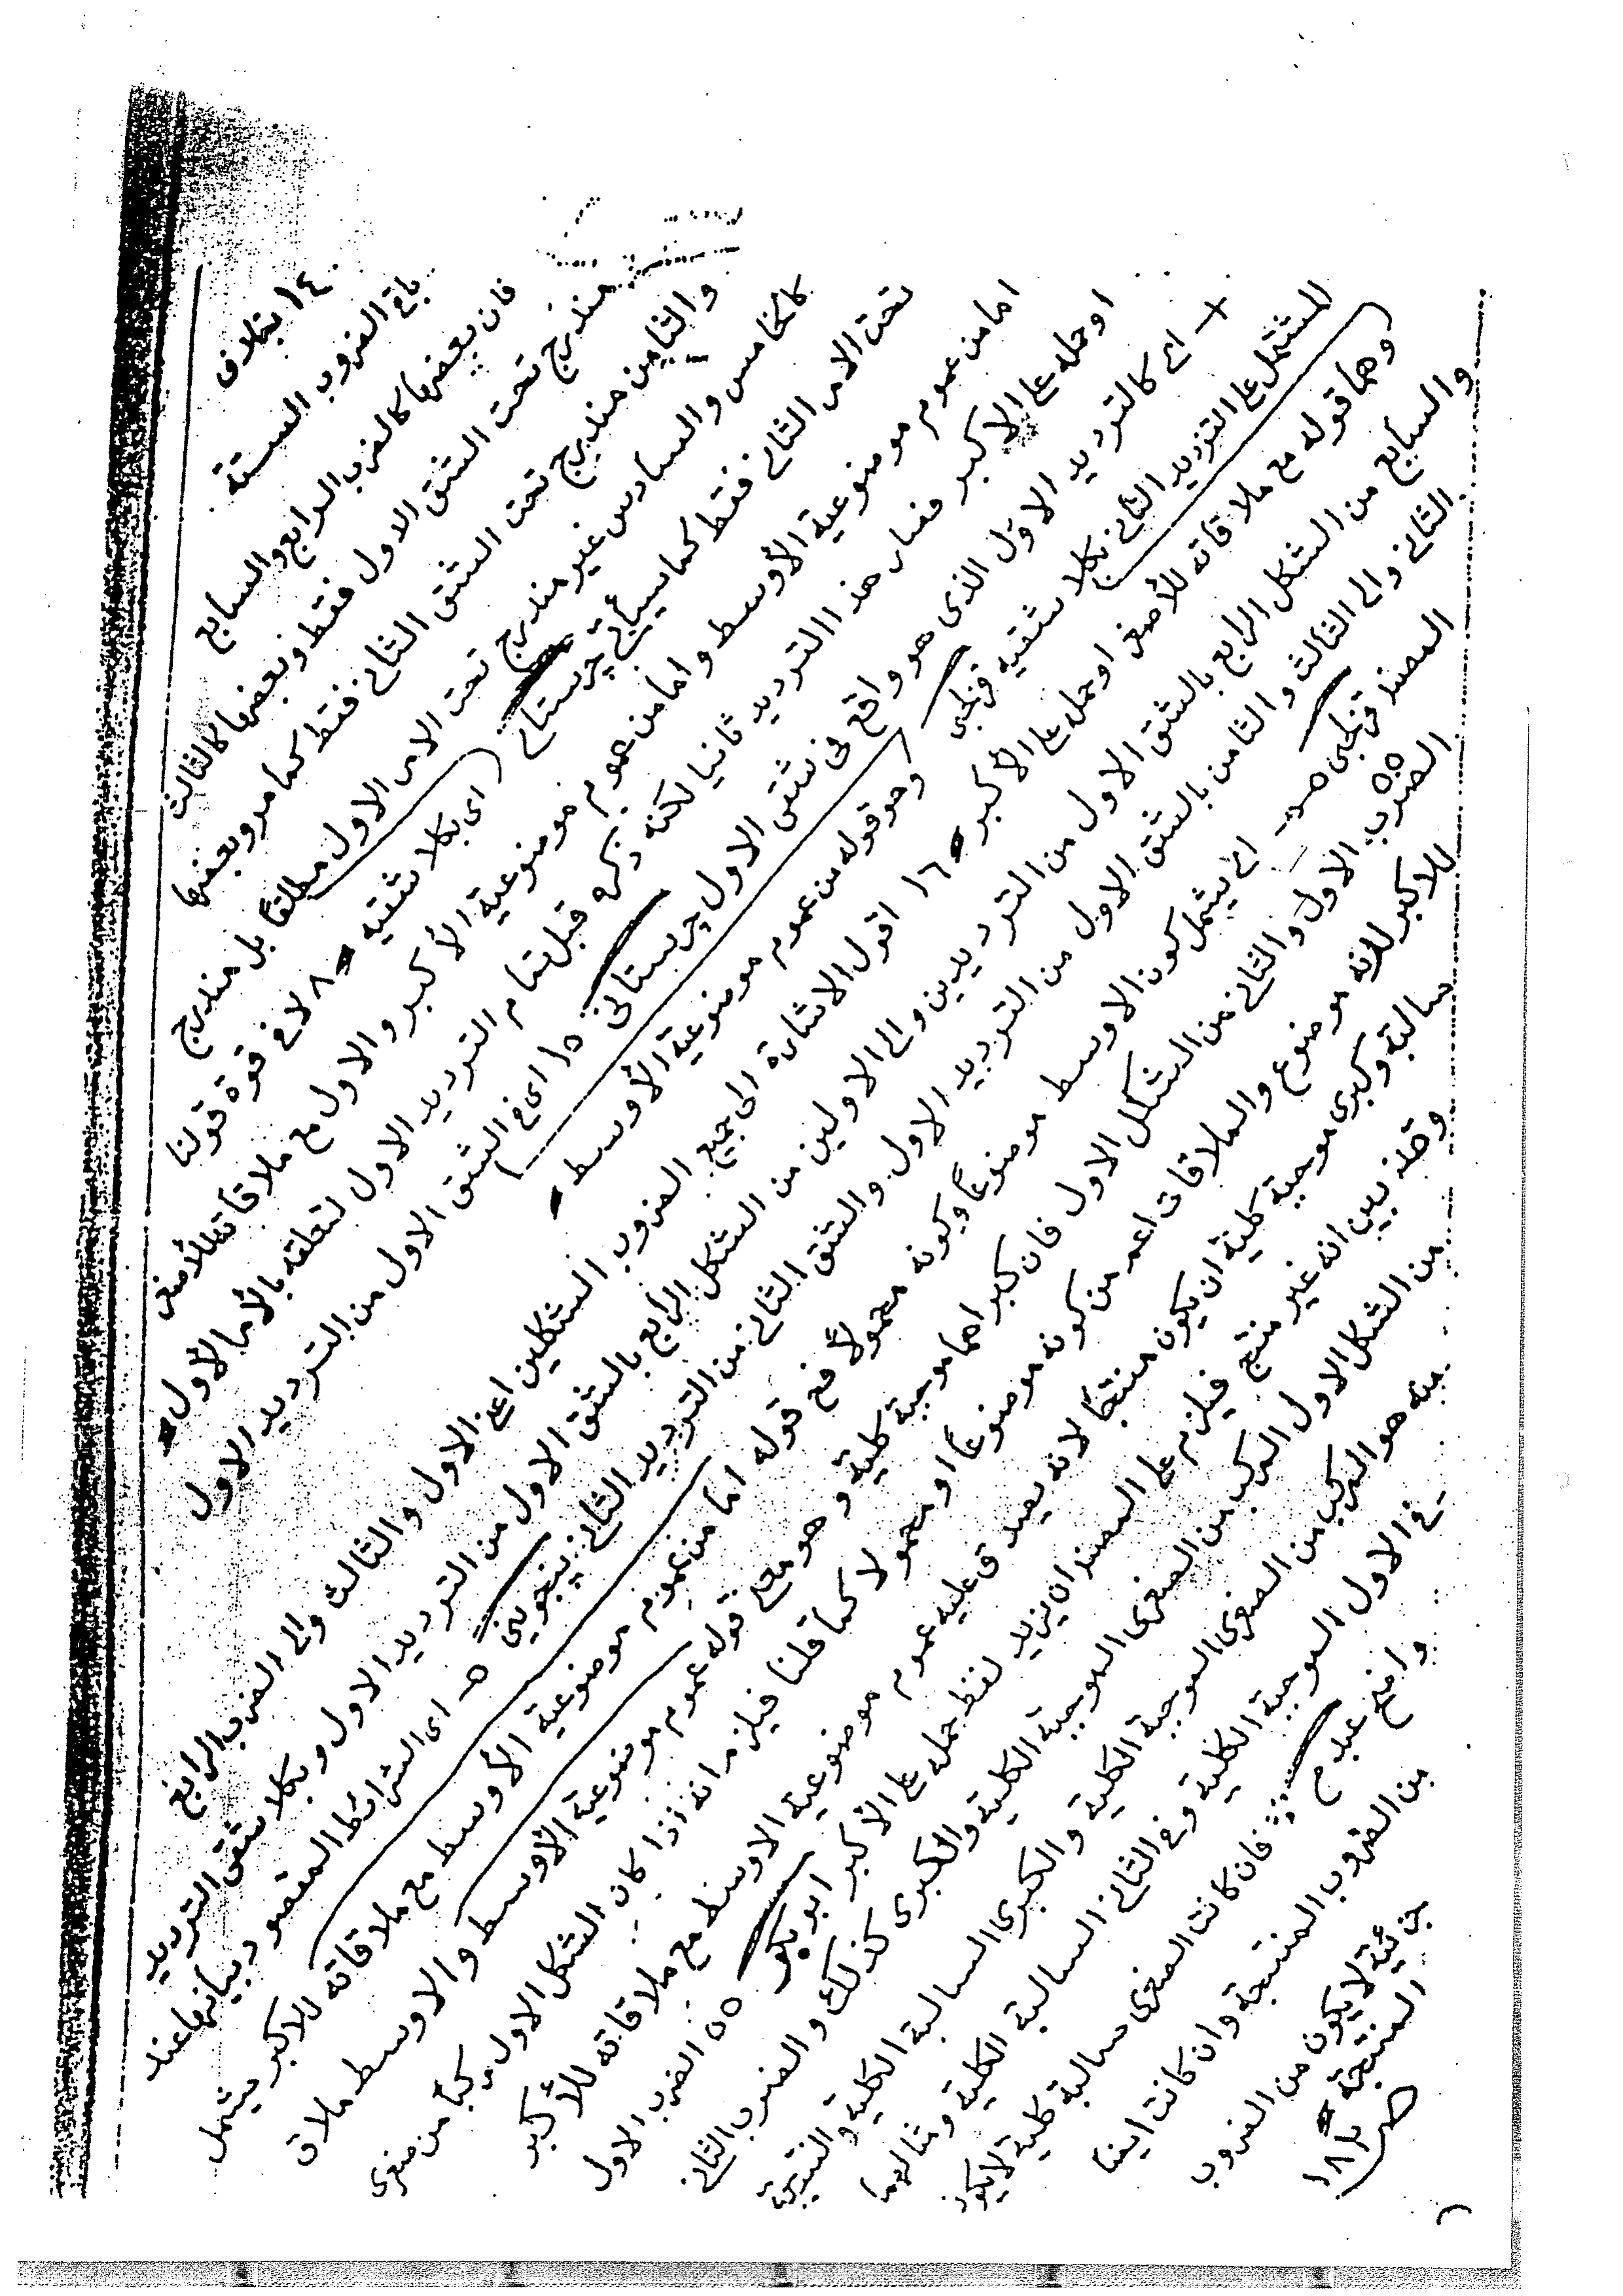 ١٤ بخلاف
باقي الضروب الستة
فان بعضها كالضرب الرابع والسابع
مندرج تحت الشق الاول فقط وبعضها كالثالث
والثامن مندرج تحت الشق الثاني فقط كما مر وبعضها
كالخامس والسادس غير مندرج تحت الامر الاول مطلقا بل مندرج
تحت الامر الثاني فقط كما سيأتي چرستانى (اى بكلا شقيه ٨ لا في قوة قولنا
اما من عموم موضوعية الأوسط واما من عموم موضوعية الأكبر والاول مع ملاقاته للأصغر
او حمله على الاكبر فصار هذا الترديد ثانيا لكنه ذكره قبل تمام الترديد الاول لتعلقه بالأمر الأول
+ اى كالترديد الاول الذى هو واقع فى شق الاول چرستانى ١٥ اى فى الشق الاول من الترديد الاول
للمشتمل على الترديد الثاني بكلا شقيه قزلجى وهو قوله من عموم موضوعية الأوسط
وهما قوله مع ملاقاته للأصغر او حمله على الأكبر ١٦ اقول الاشارة الى جميع الضروب الشكلين اعنى الاول والثالث والى الضرب الرابع
والسابع من الشكل الرابع بالشق الاول من الترديدين والى الاولين من الشكل الرابع بالشق الاول من الترديد الاول وبكلا شقى الترديد
الثاني والى الثالث والثامن بالشق الاول من الترديد الاول والشق الثاني من الترديد الثاني پنجوينى ٥ اى الشرائط المقصود بيانها عند
المصنف قزلجى ٥٥ اى يشمل كون الاوسط موضوعًا وكونه محمولًا مع قوله اما من عموم موضوعية الأوسط مع ملاقاته للاكبر يشمل
الضرب الاول والثاني من الشكل الاول فان كبراهما موجبة كلية وهو معنى قوله عموم موضوعية الأوسط والاوسط ملاق
للاكبر لانه موضوع والملاقات اعم من كونه موضوعًا او محمولا كما قلنا فيلزم انه اذا كان الشكل الاول مركبا من صغرى
سالبة وكبرى موجبة كلية ان يكون منتجًا لانه يصدق عليه عموم موضوعية الاوسط مع ملاقاته للأكبر
وقطنه بين انه غير منتج فيلزم على المصنف ان يزيد لفظ حمله على الأكبر ابوبكر ٥٥ الضرب الاول
من الشكل الاول المركب من الصغرى الموجبة الكلية والكبرى كذلك والضرب الثاني
منه هو المركب من الصغرى الموجبة الكلية والكبرى السالبة الكلية والنتيجة
في الاول الموجبة الكلية وفي الثاني السالبة الكلية ومثالهما
واضح عبدم فان كانت الصغرى سالبة كلية لا يكون
من الضروب المنتجة وان كانت ايضا
جزئية لا يكون من الضروب
المنتجة
١٨